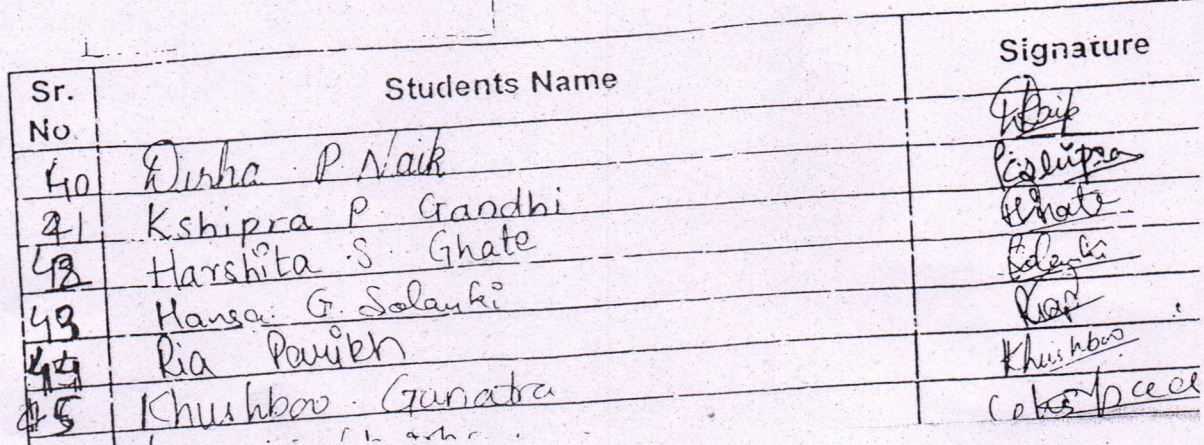 Sr. No. Students Name Signature
40 Disha P Naik Naik
41 Kshipra P. Gandhi Kshipra
42 Harshita S. Ghate Ghate
43 Hansa G. Solanki Solanki
44 Ria Parikh Ria
45 Khushboo Ganatra Khushboo